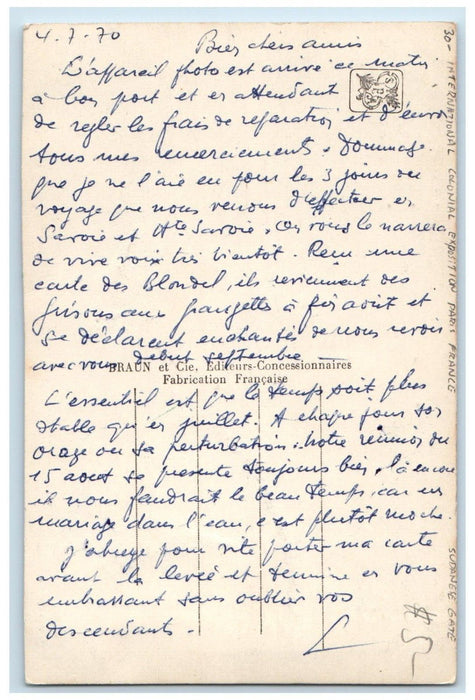 4.7.70
Bien chers amis
L'appareil photo est arrivé ce matin
à bon port et en attendant
de regler les frais de reparation et d'envoi
tous mes remerciements. Dommage
que je ne l'aie eu pour les 3 jours de
voyage que nous venons d'effectuer en
Savoie et Hte Savoie, on vous le narrera
de vive voix très bientôt. Reçu une
carte des Blondel, ils reviennent des
Grisons aux fin août et
se déclarent enchantés de nous revoir
avec vous début septembre
BRAUN et Cie, Editeurs-Concessionnaires
Fabrication Française
L'essentiel est que le temps soit plus
stable qu'en juillet. A chaque jour son
orage ou sa perturbation. Notre réunion du
15 aout se présente toujours bien, là encore
il nous faudrait le beau temps, car un
mariage dans l'eau, c'est plutôt moche.
J'abrège pour vite porter ma carte
avant la levée et termine en vous
embrassant sans oublier vos
descendants.
30- INTERNATIONAL COLONIAL EXPOSITION PARIS FRANCE